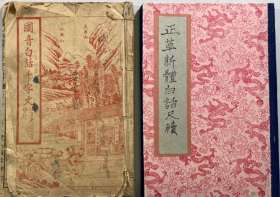 國音白話千字文
正草新體白話尺牘